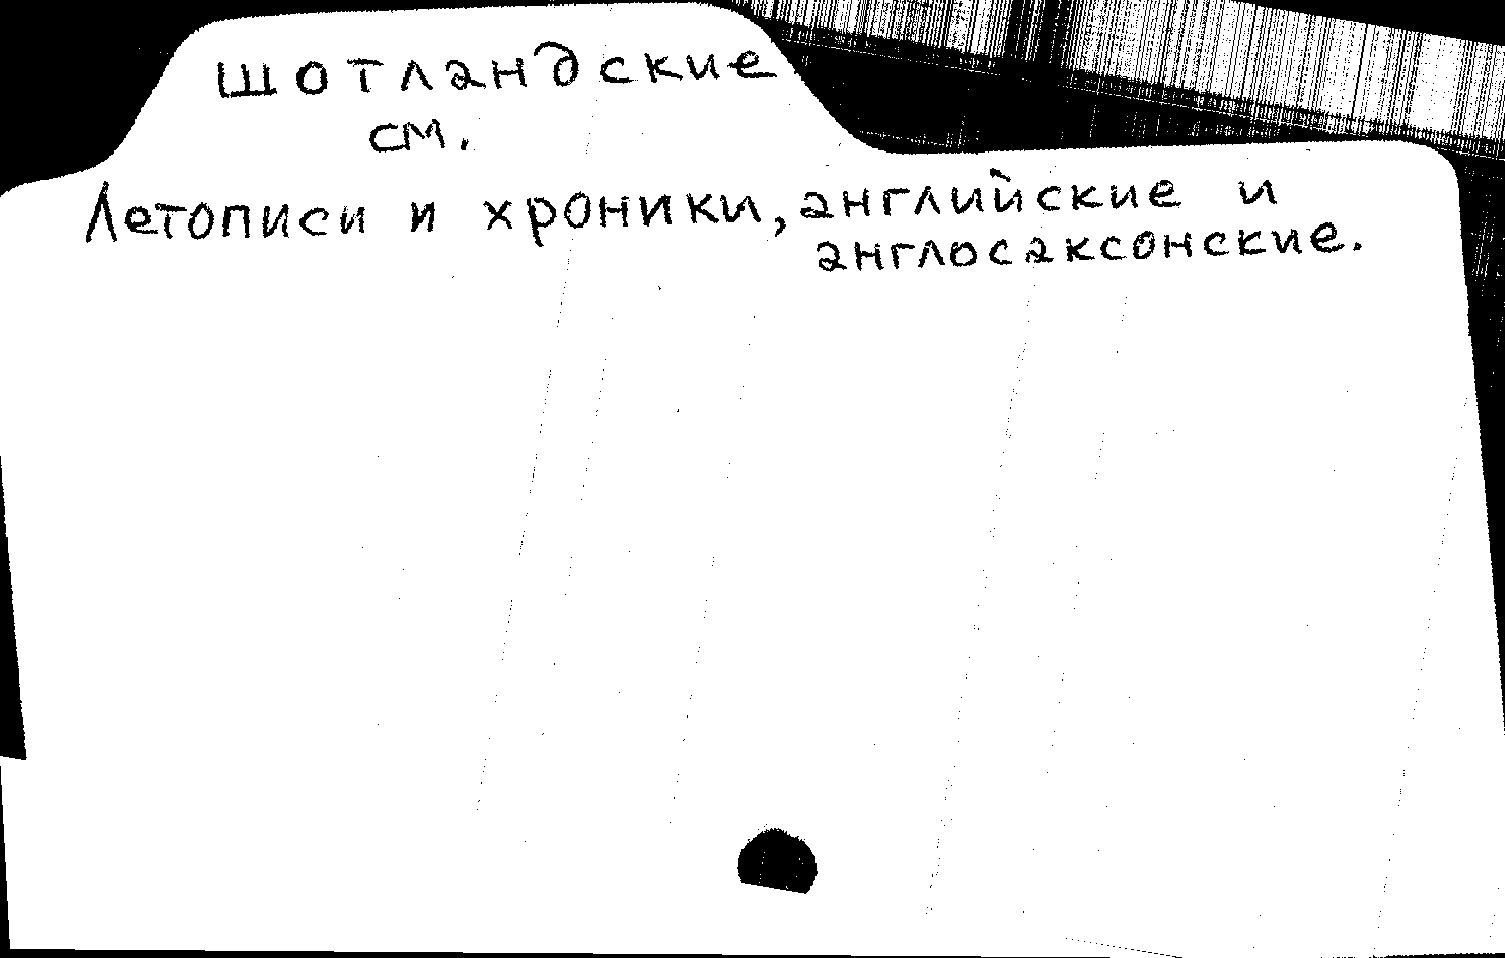 шотландские
см.
Летописи и хроники, английские и
англосаксонские.